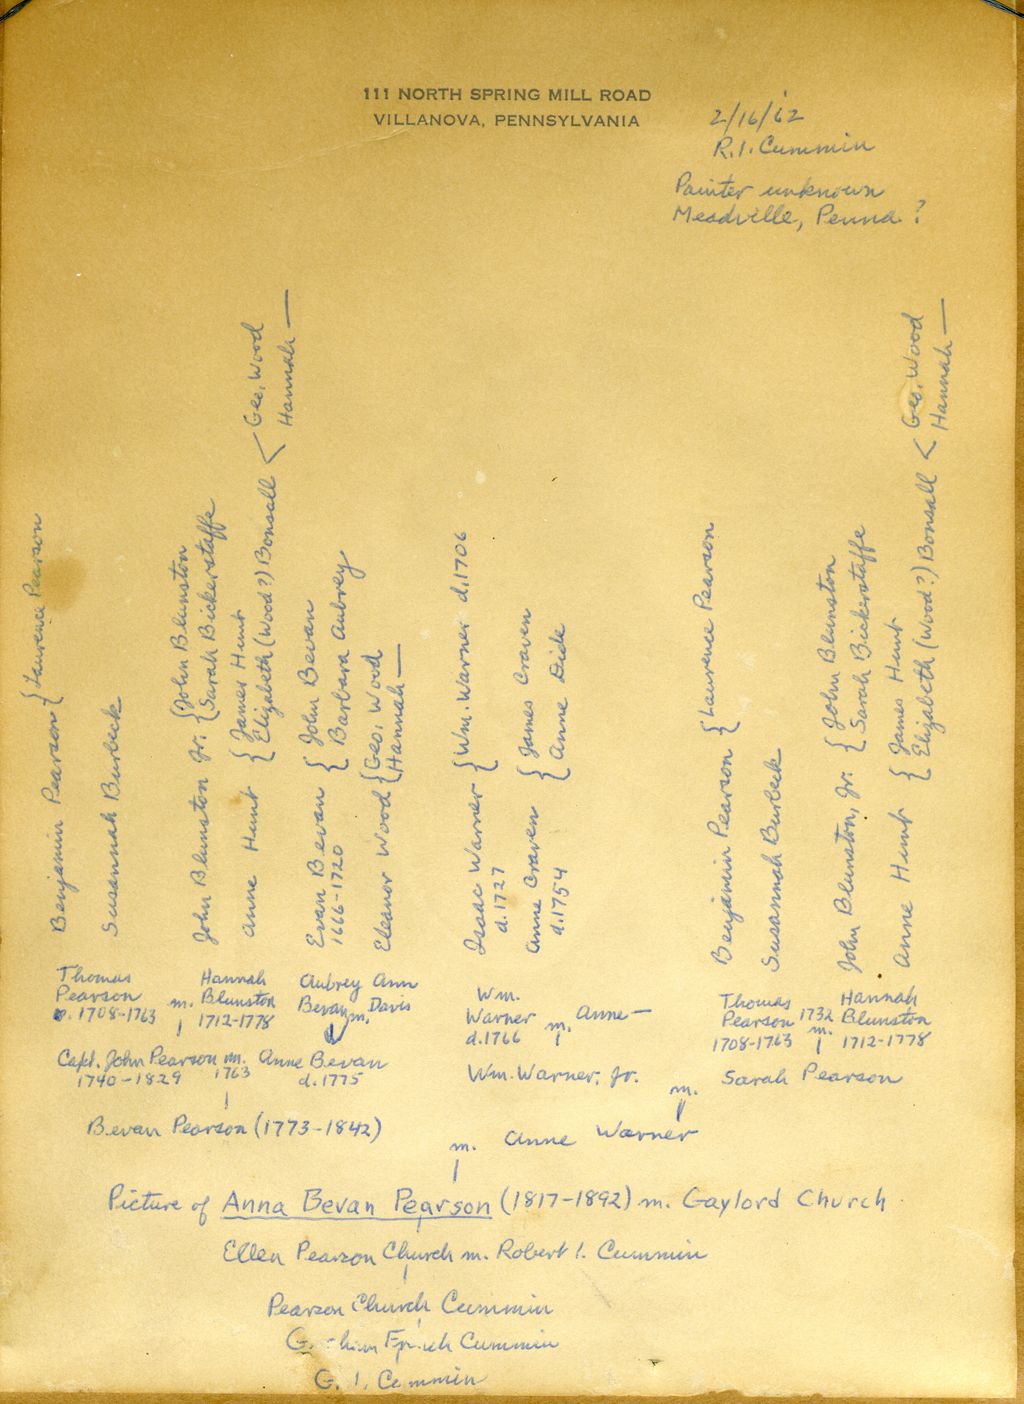 111 NORTH SPRING MILL ROAD
VILLANOVA, PENNSYLVANIA
2/16/62
R.I. Cummin
Painter unknown
Meadville, Penna. ?
Benjamin Pearson { Laurence Pearson
Susannah Burbeck
John Blunston Jr. { John Blunston
Sarah Bickerstaffe
Anne Hunt { James Hunt
Elizabeth (Wood?) Bonsall < Geo. Wood
Hannah —
Evan Bevan { John Bevan
1666-1720 Barbara Aubrey
Eleanor Wood { Geo. Wood
Hannah —
Isaac Warner { Wm. Warner d. 1706
d. 1727
Anne Craven { James Craven
d. 1754 Anne
Benjamin Pearson { Laurence Pearson
Susannah Burbeck
John Blunston, Jr. { John Blunston
Sarah Bickerstaffe
Anne Hunt { James Hunt
Elizabeth (Wood?) Bonsall < Geo. Wood
Hannah —
Thomas
Pearson m.
1708-1763
Hannah
Blunston
1712-1778
Aubrey Ann
Bevan m. Davis
Wm.
Warner m. Anne —
d. 1766
Thomas
Pearson 1732 m.
1708-1763
Hannah
Blunston
1712-1778
Capt. John Pearson m. Anne Bevan
1740-1829 1763 d. 1775
Wm. Warner, Jr. m. Sarah Pearson
Bevan Pearson (1773-1842) m. Anne Warner
Picture of Anna Bevan Pearson (1817-1892) m. Gaylord Church
Ellen Pearson Church m. Robert I. Cummin
Pearson Church Cummin
G. Cummin
G. I. Cummin